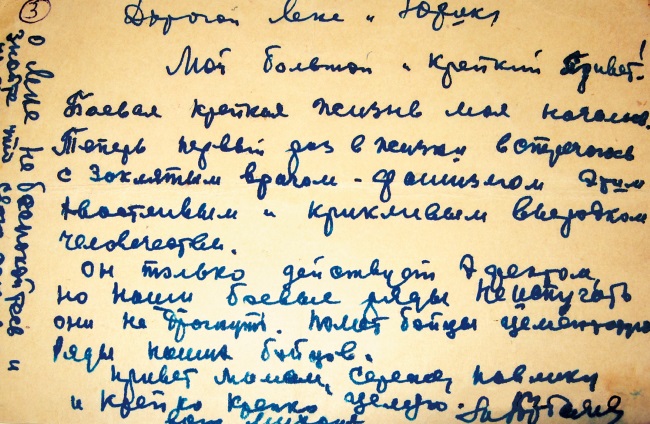 3
Дорогой Лене и Юрик!
Мой большой и крепкий Привет!
Боевая крепкая жизнь моя началась.
Теперь первый раз в жизни встречаюсь
с заклятым врагом - фашизмом этим
хвастливым и крикливым выродком
человечества.
Он только действует эфектом,
но наши боевые ряды не испугать
они не дрогнут. Помог бойцы
Ряды наших бойцов.
Привет мамам, Сереже, Павлику
и крепко крепко целую.
О Лене не беспокойтесь и
знайте что